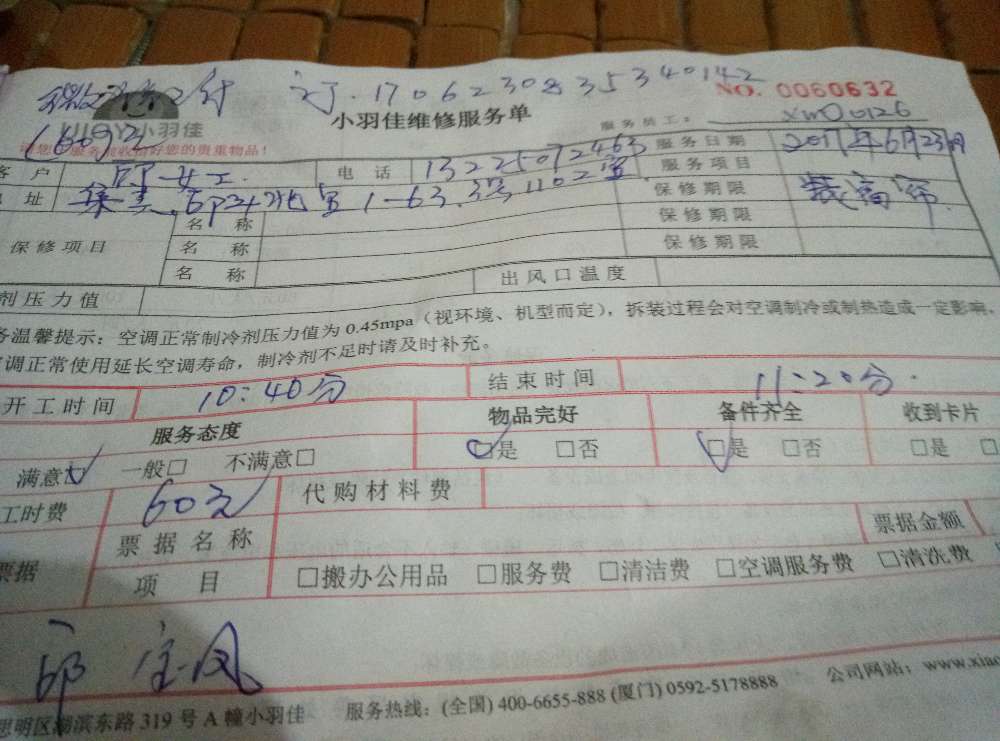 订.1706230835340142
NO. 0060632
小羽佳
小羽佳维修服务单
服务员工: XM00126
服务您的贵重物品!
客户 女士. 电话 13225072463 服务日期 2017年6月23日
地址 集美 1-63.3号1102室. 服务项目 装窗帘.
保修项目 名称 保修期限
名称 保修期限
名称 保修期限
剂压力值 出风口温度
务温馨提示:空调正常制冷剂压力值为0.45mpa(视环境、机型而定),拆装过程会对空调制冷或制热造成一定影响,
调正常使用延长空调寿命,制冷剂不足时请及时补充。
开工时间 10:40分 结束时间 11:20分.
服务态度 物品完好 备件齐全 收到卡片
满意☑ 一般□ 不满意□ ☑是 □否 ☑是 □否 □是 □
工时费 60元 代购材料费
票据 票据名称 票据金额
项目 □搬办公用品 □服务费 □清洁费 □空调服务费 □清洗费
思明区湖滨东路319号A幢小羽佳 服务热线:(全国) 400-6655-888 (厦门) 0592-5178888 公司网站:www.xiao